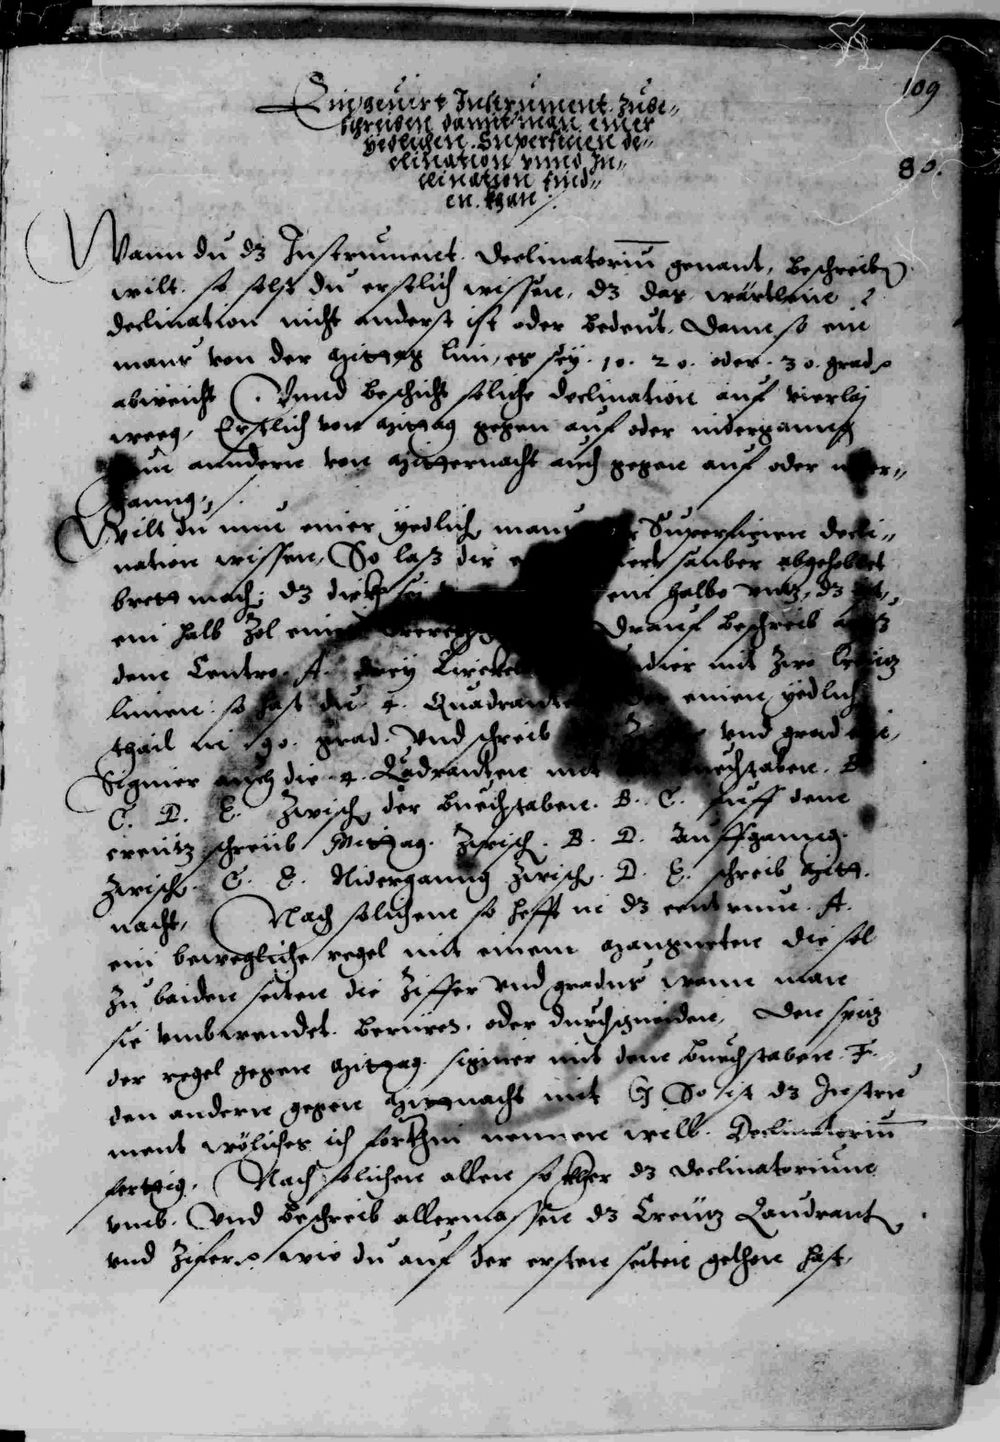 109
Ein geuirt Instrument zube-
schreiben damit man einer
yedlichen Superficien de-
clination vnnd In-
clination find-
en khan
80.
Wann du dz Instrument Declinatoriu genant, beschreiben
wilt. so solst du erstlich wissen, dz das wörtlein
declination nicht anderst ist oder bedeut, dann so ein
maur von der Mittag lini, es sey. 10. 20. oder. 30. grad
abweicht. Vnnd beschicht soliche declination auf vierlej
weeg, Erstlich von Mittag gegen auf oder niderganng
andern von Mitternacht auch gegen auf oder
ganng.
Wilt du nun einer yedlich Superficien decli-
nation wissen, So laß dir sauber abgehoblet
brett mach, dz dick ein halbe dz
ein halb Zol drauf beschreib
dem Centro. A. drey Circkel mit zwo Creutz
linien: so hast du 4. Quadranten einen yedlich
thail in 90. grad. Vnd schreib vnd grad
Signier auch die 4. Quadranten mit buechstaben. B
C. D. E. Zwisch der buechstaben. B. C. auff dem
creutz schreib Mittag. Zwisch. B. D. Auffganng.
Zwisch. C. E. Niderganng Zwisch. D. E. schreib Mitt.
nacht, Nach solichem so hefft in dz centrum. A.
ein bewegliche regel mit einem Mangneten die sol
Zu baiden seiten die Ziffer vnd gradus wann man
sie vmbwendet. beruren. oder durchschneiden, Den spitz
der regel gegen Mittag. signier mit dem buechstaben. F.
den andern gegen Mittnacht mit G So ist dz Instru
ment wöliches ich forthin nennen will. Declinatoriu
fertig. Nach solichen allen so kher dz declinatorium
vmb. Vnd beschreib allermassen dz Creutz Quadrant
vnd Zifern wie du auf der ersten seiten gethon hast,